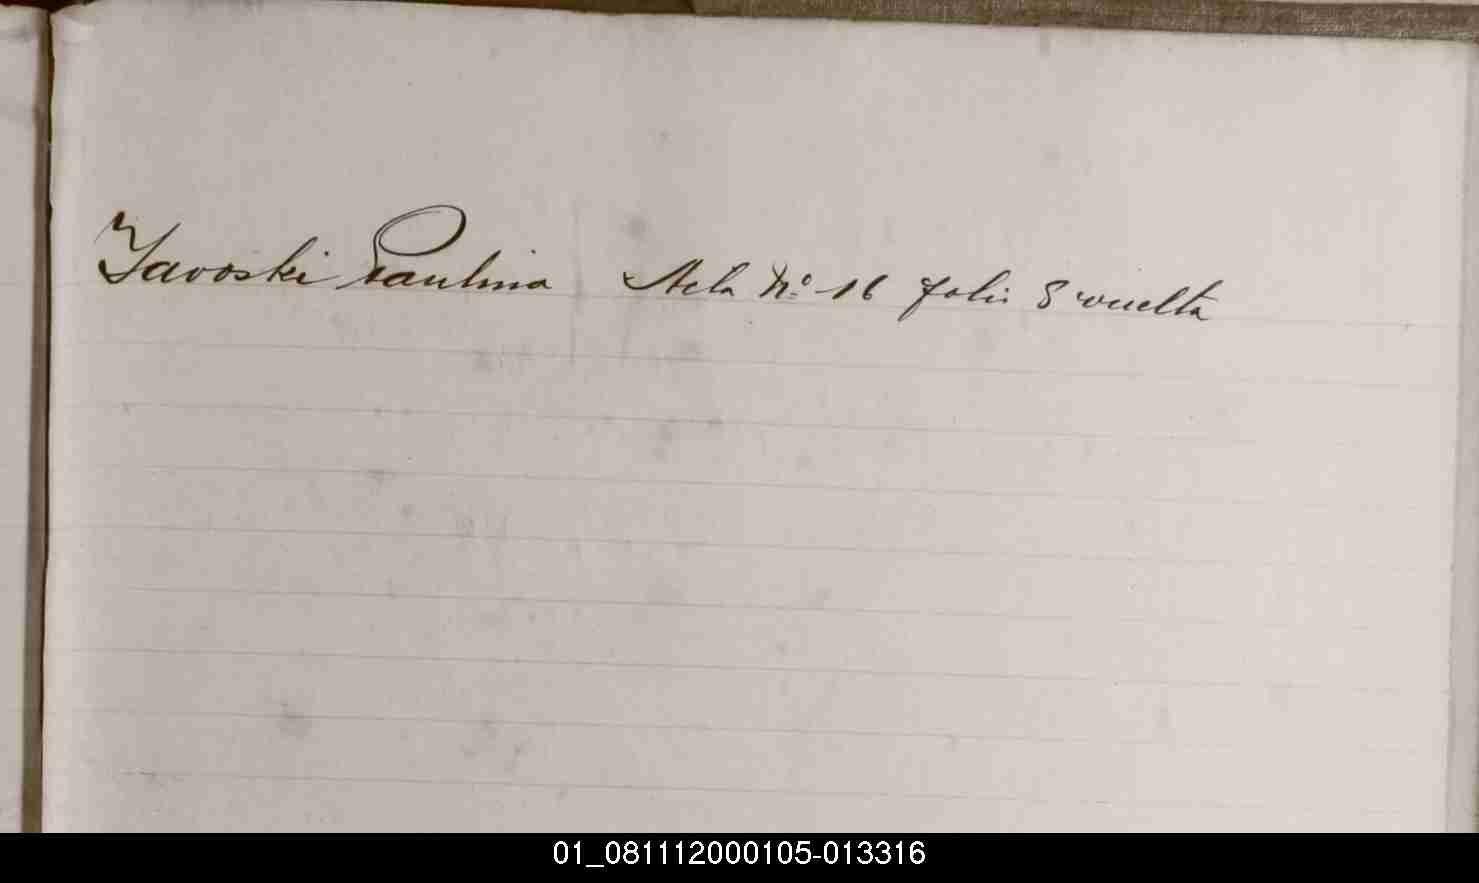 Yavoski Paulina Acta Nº 16 folio 8 vuelta
01_081112000105-013316